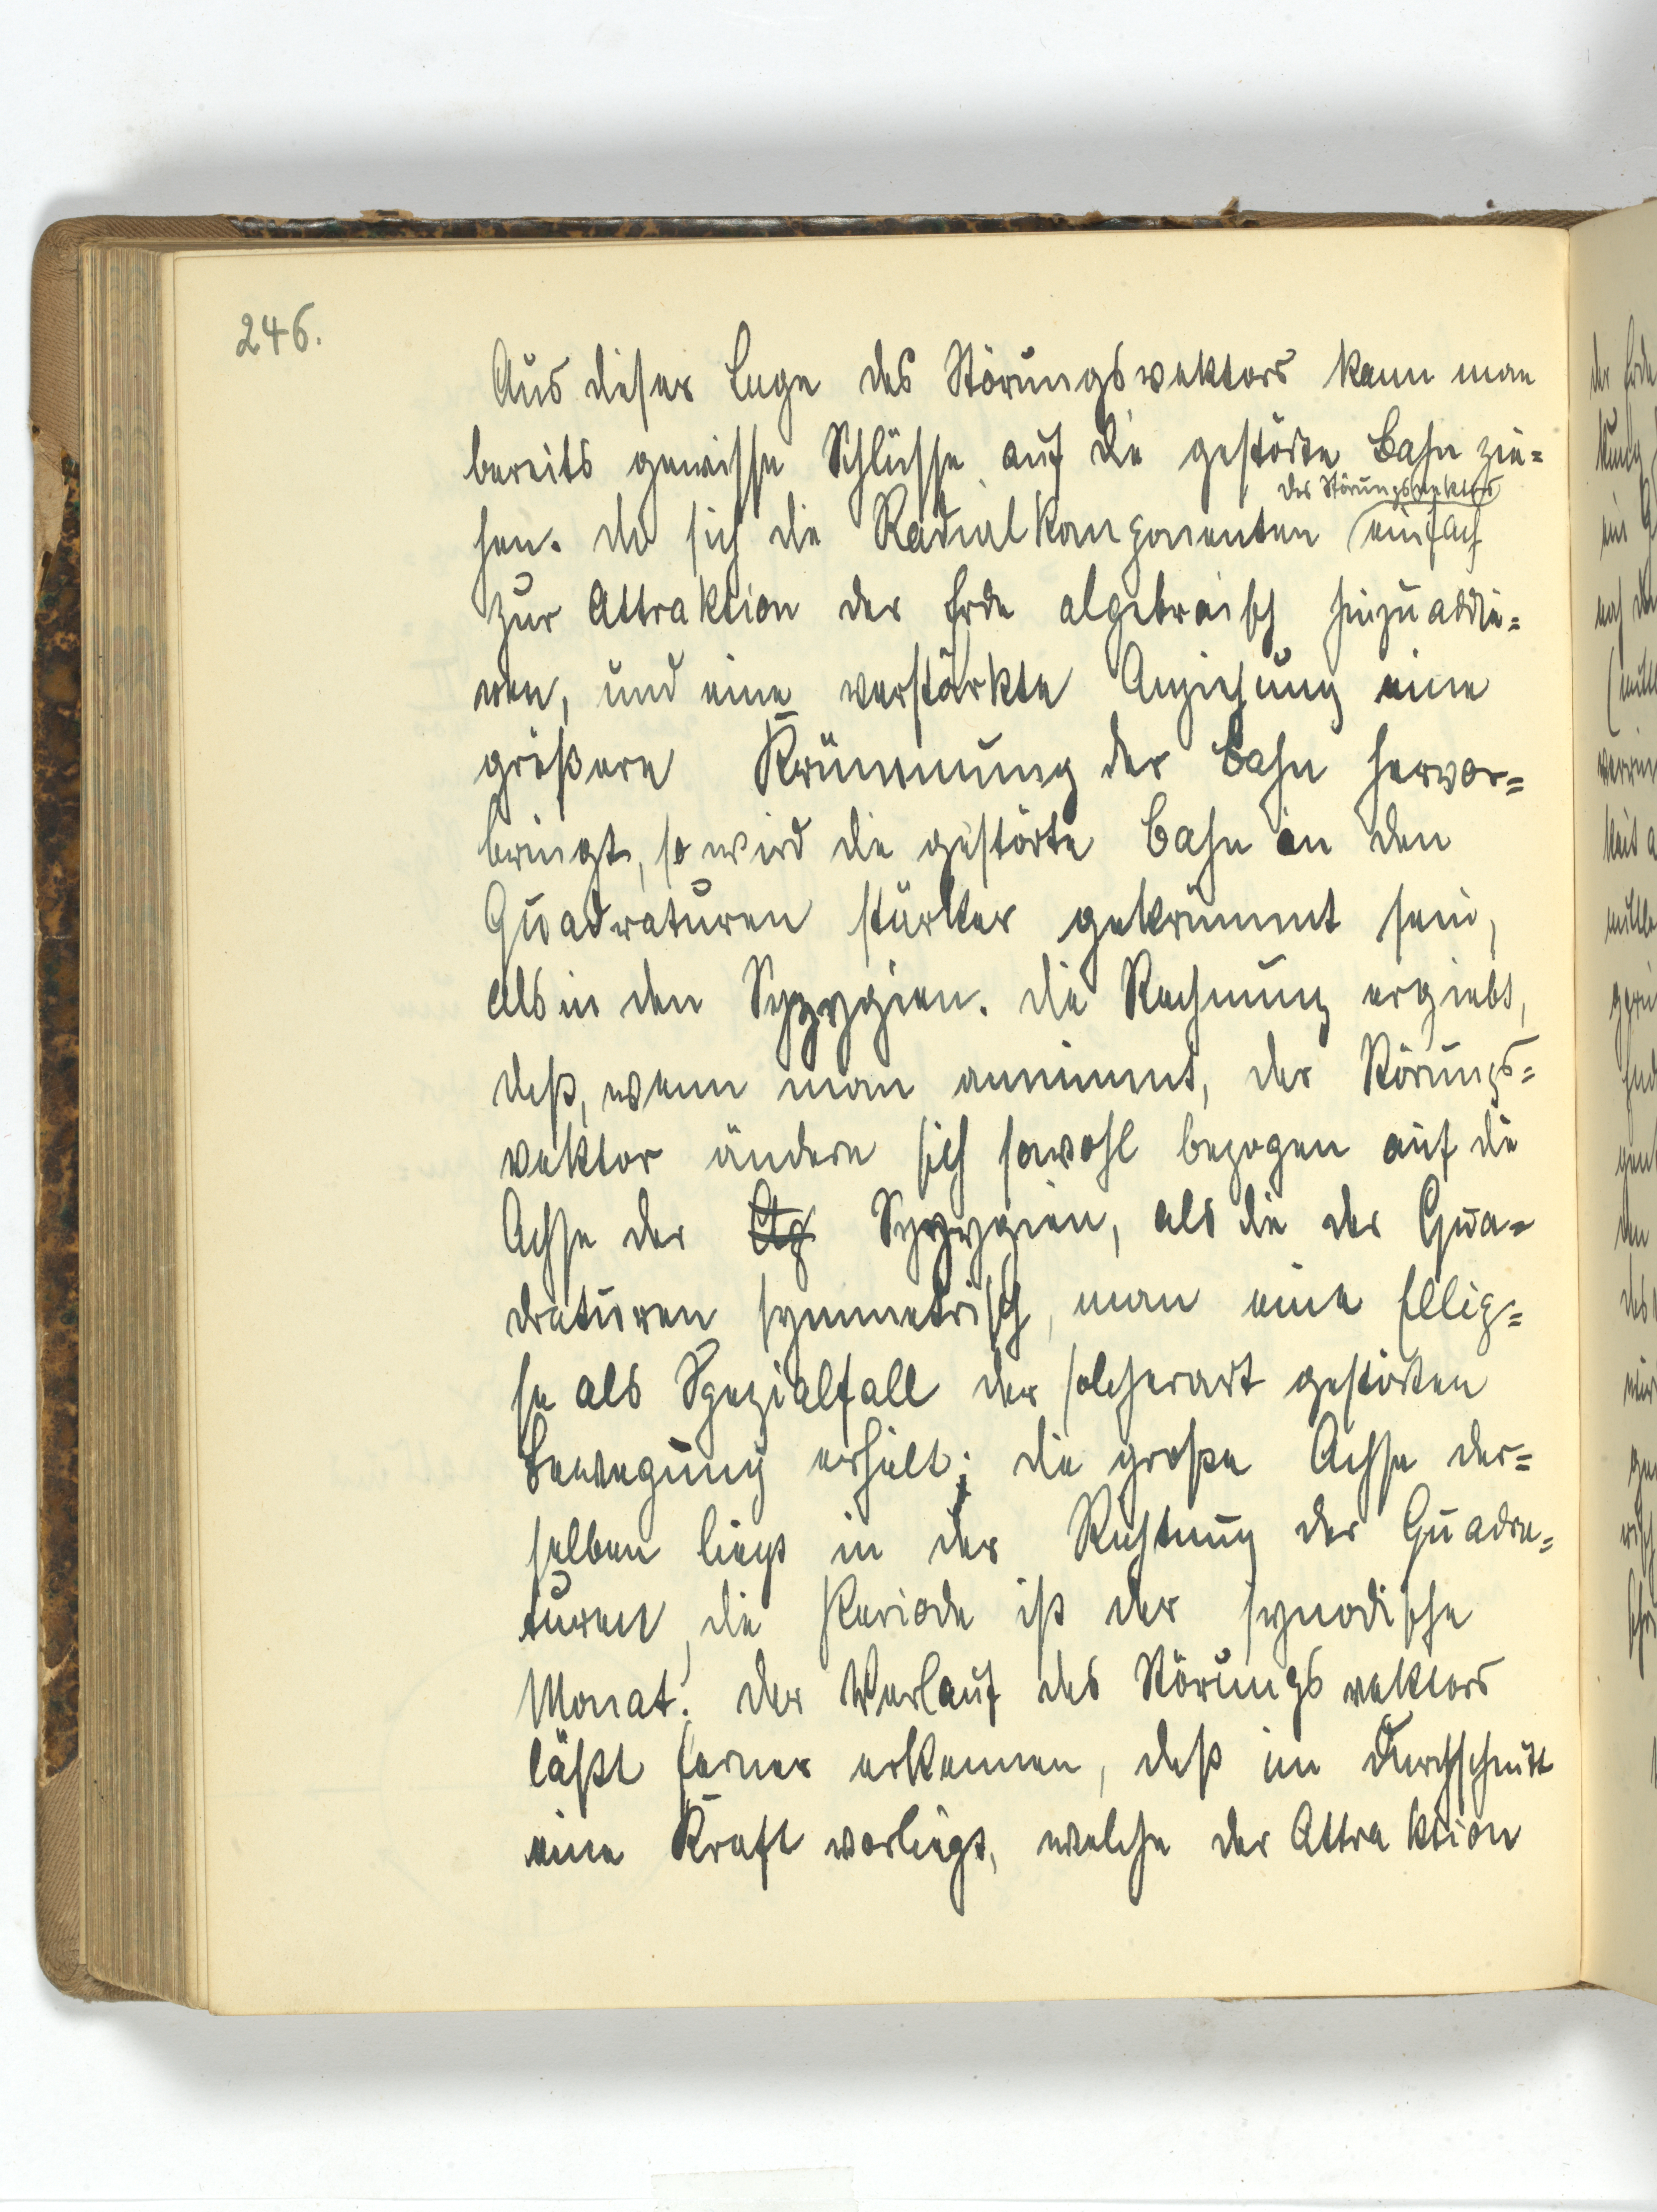 246.
Aus dieser Lage des Störungsvektors kann man
bereits gewisse Schlüsse auf die gestörte Bahn zie=
des Störungsvektors
hen. da sich die Radialkomponenten einfach
zur Attraktion der Erde algebraisch hinzuaddie=
ren, und eine verstärkte Anziehung eine
größere Krümmung der Bahn hervor=
bringt, so wird die gestörte Bahn in den
Quadraturen stärker gekrümmt sein,
als in den Syzygien. die Rechnung ergiebt,
daß, wenn man annimmt, der Störungs=
vektor ändere sich sowohl bezogen auf die
Achse der Syzygien, als die der Qua=
draturen symmetrisch, man eine Ellip=
se als Spezialfall der solcherart gestörten
Bewegung erhält; die große Achse der=
selben liegt in der Richtung der Quadra=
turen, die Periode ist der synodische
Monat. der Verlauf des Störungsvektors
läßt ferner erkennen, daß im Durchschnitt
eine Kraft vorliegt, welche der Attraktion
der Erde